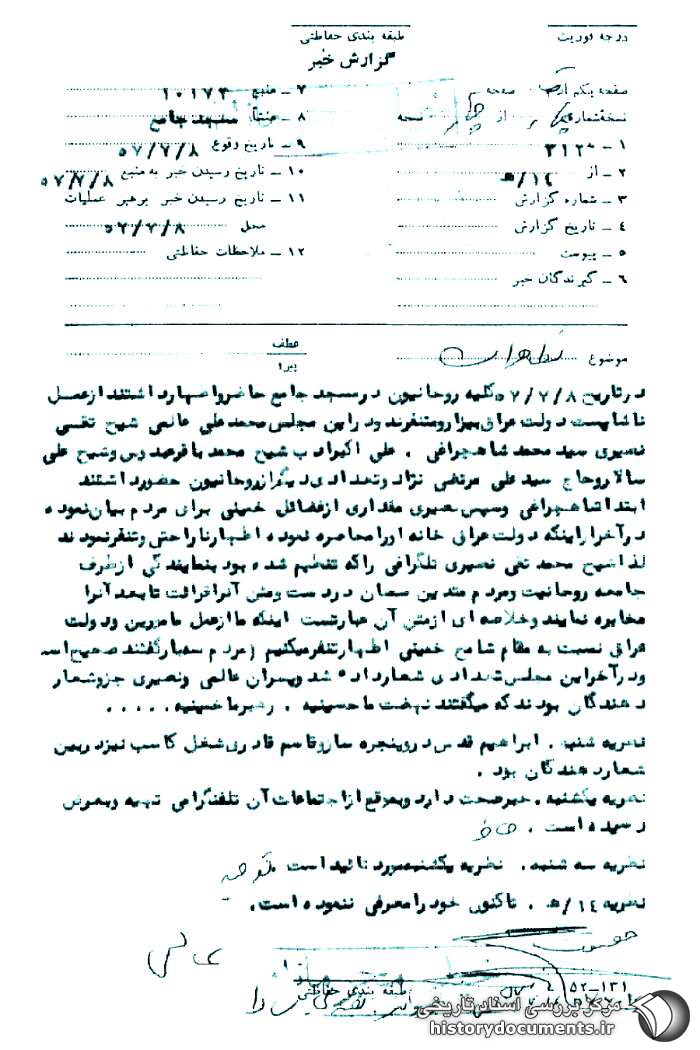 درجه فوریت
طبقه بندی حفاظتی
گزارش خبر
صفحه یکم از صفحه
نسخه شماره از نسخه
۱ ـ به ۳۱۲
۲ ـ از ۱۴/ه
۳ ـ شماره گزارش
۴ ـ تاریخ گزارش
۵ ـ پیوست
۶ ـ گیرندگان خبر
۷ ـ منبع ۱۰۱۷۳
۸ ـ منشأ مسجد جامع
۹ ـ تاریخ وقوع ۵۷/۷/۸
۱۰ ـ تاریخ رسیدن خبر به منبع ۵۷/۷/۸
۱۱ ـ تاریخ رسیدن خبر برهبر عملیات
محل ۵۷/۷/۸
۱۲ ـ ملاحظات حفاظتی
موضوع تظاهرات
عطف
پیرو
درتاریخ ۵۷/۷/۸ کلیه روحانیون درمسجد جامع حاضرواظهارداشتند ازعمل
ناشایست دولت عراق بیزارومتنفرند ودراین مجلس محمدعلی عالمی شیخ تقی
نصیری سید محمد شاهچراغی . علی اکبرادب شیخ محمد باقرصدیق وشیخ علی
سالاروحاج سیدعلی مرتضی نژاد وتعدادی دیگرازروحانیون حضورداشتند
ابتدا شاهچراغی وسپس نصیری مقداری ازفضائل خمینی برای مردم بیان نموده
درآخرازاینکه دولت عراق خانه اورا محاصره نموده اظهارناراحتی وتنفرنمودند
لذا شیخ محمد تقی نصیری تلگرافی راکه تنظیم شده بود بنمایندگی ازطرف
جامعه روحانیت ومردم متدین سمنان دردست ومتن آنراقرائت تابعد آنرا
مخابره نمایند وخلاصه ای ازمتن آن عبارتست اینکه ماازعمل مامورین ودولت
عراق نسبت به مقام شامخ خمینی اظهارتنفرمیکنیم (مردم سه بارگفتند صحیح است
ودرآخراین مجلس تعدادی شعارداده شد وپسران عالمی ونصیری جزوشعار
دهندگان بودند که میگفتند نهضت ما حسینیه . رهبرما خمینیه . . . . .
نظریه شنبه . ابراهیم قدس دروپنجره سازوقاسم قادری شغل کاسب نیزدربین
شعاردهندگان بود .
نظریه یکشنبه . خبرصحت دارد وبموقع ازاجتماعات آن تلفنگرامی تهیه وبعرض
رسیده است .
نظریه سه شنبه . نظریه یکشنبه مورد تائید است .
نظریه ۱۴/ه . تاکنون خود رامعرفی ننموده است .
طبقه بندی حفاظتی
۵۲-۱۳۱
مرکز بررسی اسناد تاریخی
historydocuments.ir